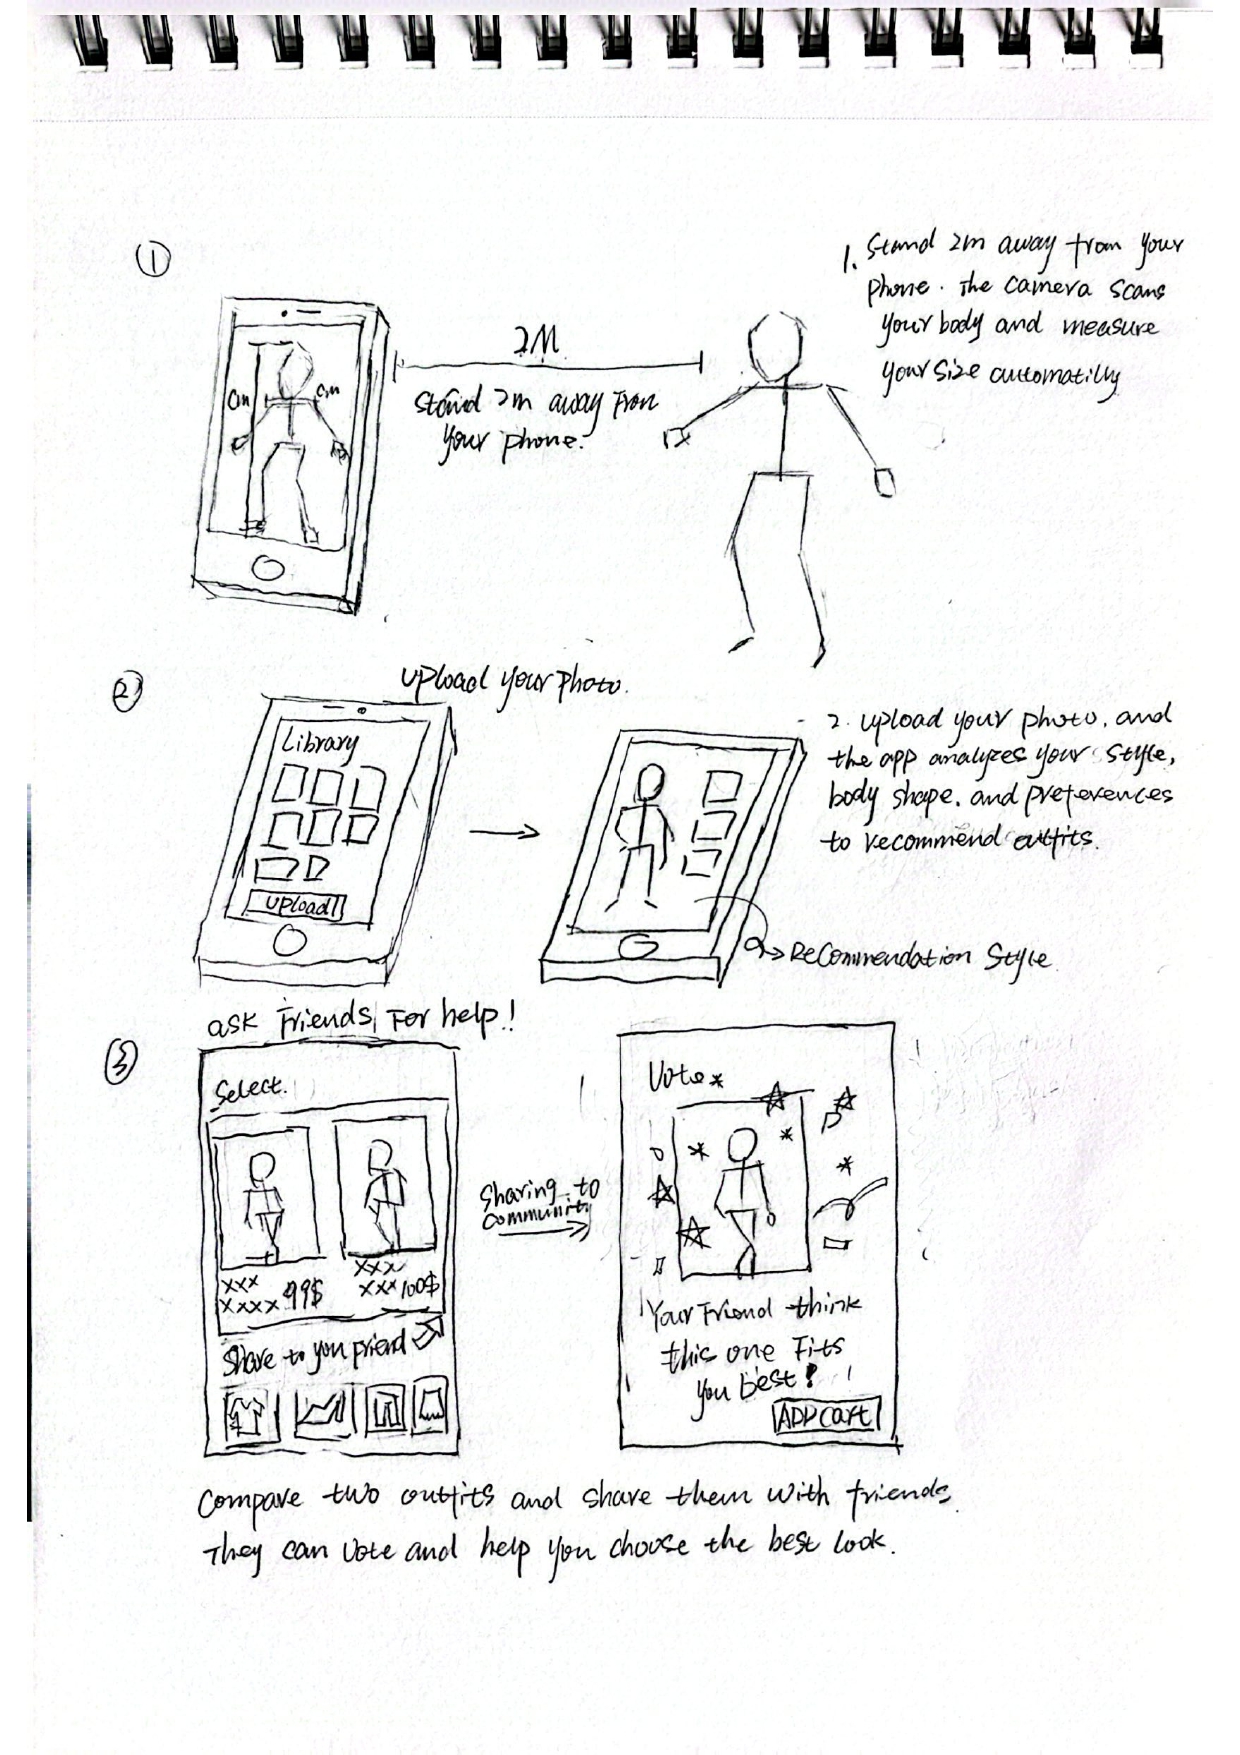 ①
1. Stand 2m away from your
phone. The camera scans
your body and measure
your size automatilly
2M
Stand 2m away From
your phone.
cm cm
②
upload your photo.
Library
upload
2. upload your photo, and
the app analyzes your style,
body shape, and preferences
to recommend outfits.
Recommendation Style
ask Friends For help!
③
Select.
xxx
xxxx 99$
xxx
xxx 100$
Share to you friend
Sharing to
Community
Vote
Your Friend think
this one Fits
you best!
ADD cart
Compare two outfits and share them with friends.
They can vote and help you choose the best look.